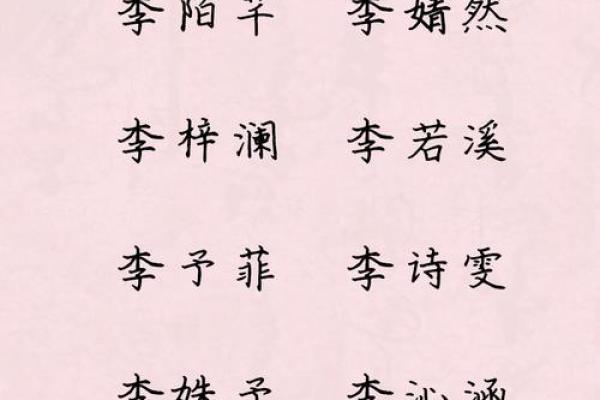 李陌芊 李婧然
李梓澜 李若溪
李予菲 李诗雯
李姝予 李沁涵